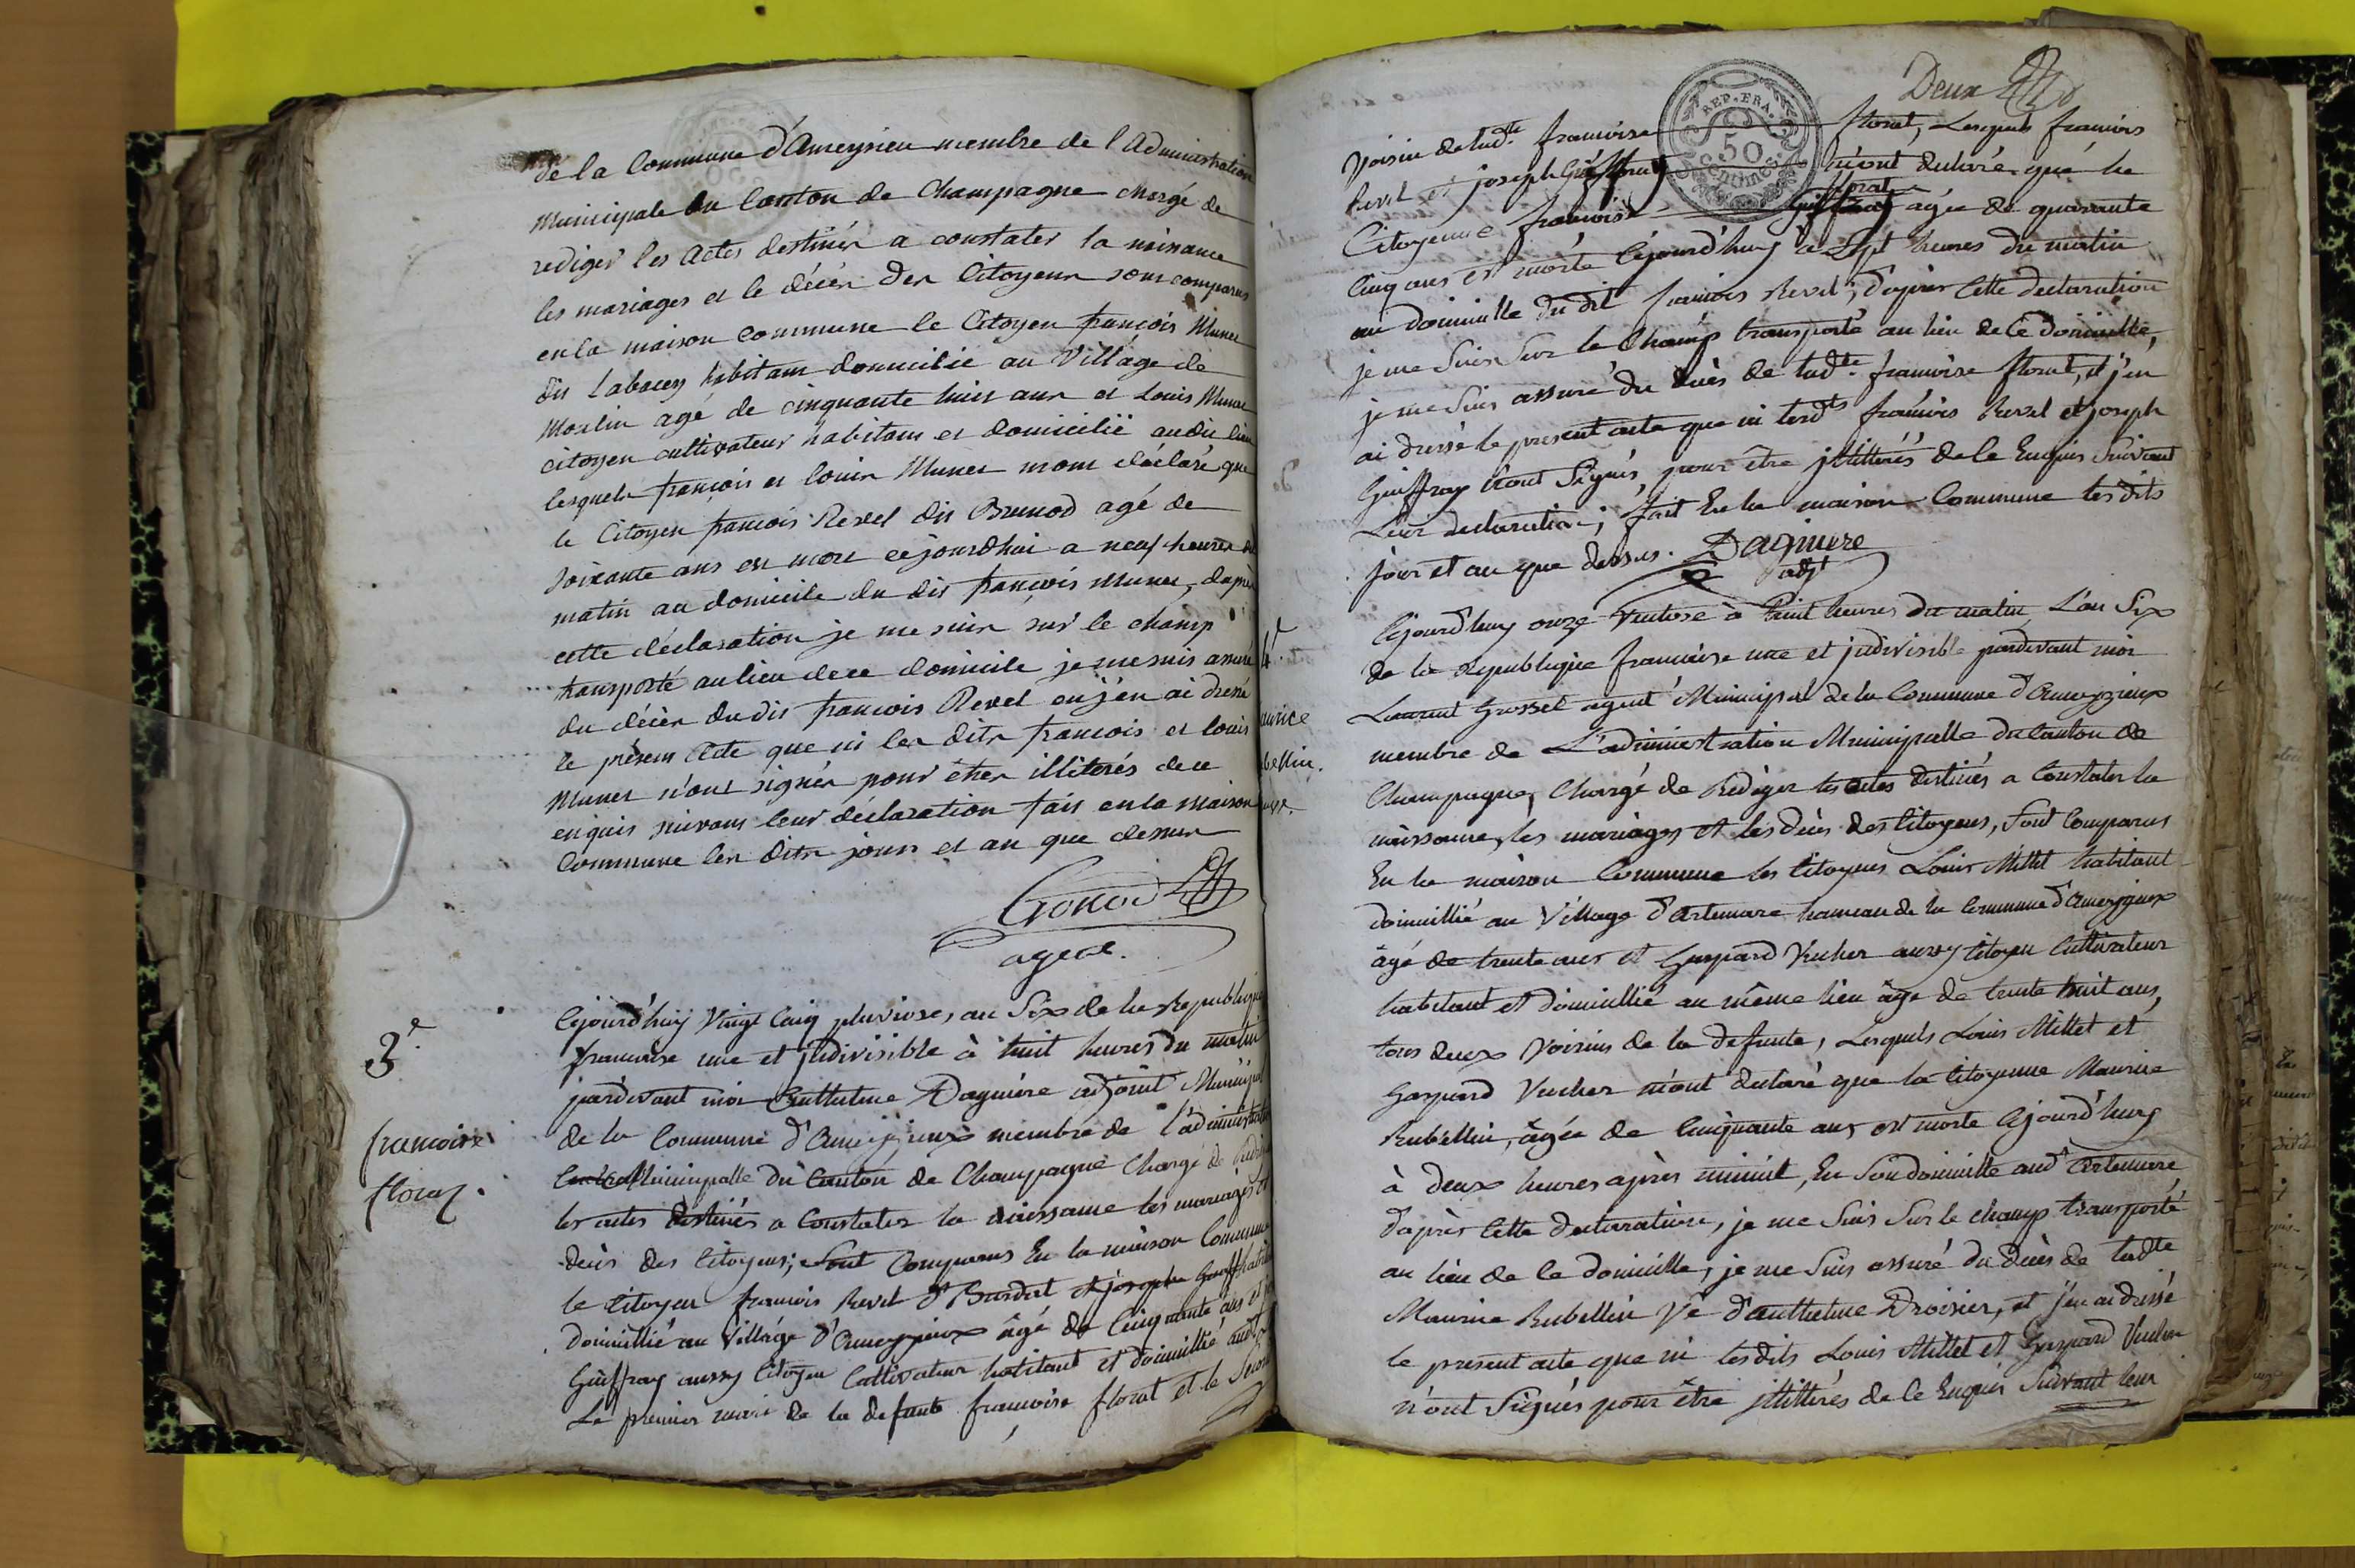 de la Commune d'Ameysieu membre de l'Administration
Municipale du Canton de Champagne chargé de
rediger les Actes destinés a constater la naissance
les mariages et le décès des Citoyens sont comparus
en la maison commune le Citoyen françois Munet
dit Labacey habitant domicilié au Village de
Moslin agé de cinquante huit ans et Louis Munet
citoyen cultivateur habitant et domicilié au dit lieu
lesquels françois et louis Munet m'ont déclaré que
le Citoyen francois Revel dit Brunod agé de
soixante ans est mort cejourdhui a neuf heures du
matin au domicile du dit françois Munet, d'après
cette déclaration je me suis sur le champ
transporté au lieu de ce domicile je me suis assuré
du décès du dit francois Revel et j'en ai dressé
le présent Acte que ni les dits francois et louis
Munet n'ont signés pour être illiterés de ce
enquis suivant leur déclaration fait en la maison
Commune les dits jours et an que dessus
Gonod
agent.
3e
francoise
floraz.
Cejourd'huy Vingt Cinq pluviose, an Six de la Republique
francaise une et jndivisible à huit heures du matin
pardevant moi Anthelme Dagniere adjoint Municipal
de la Commune d'Ameyzieux membre de l'administration
Municipalle du Canton de Champagne Chargé de
les actes destinés a Constater la naissance les mariages et
decès des Citoyens; Sont Comparus En la maison Commune
le Citoyen francois Revel d' Bardat et joseph
domicillié au Village d'Ameyzieux âgé de Cinquante ans et
Guiffray aussy Citoyen Cultivateur habitant et domicillié audt
Le premier mari de la defunte francoise florat et le Second
Deux
Voisin de lad.te francoise florat, Lesquels francois
Revel et joseph Guiffray m'ont declaré que la
Citoyenne francoise florat âgée de quarante
Cinq ans est morte Cejourd'huy à Sept heures du matin
au domicille du dit francois Revel; d'après Cette declaration
je me Suis Sur le Champ transporté au lieu de Ce domicille,
je me Suis assuré du decès de ladte. francoise florat, et j'en
ai dressé le present acte que ni lesdts francois Revel et joseph
Guiffray n'ont Signés, pour être jllitterés de Ce Enquis Suivant
Leur declaration; fait En la maison Commune les dits
jour et an que dessus. Dagniere
adjt
4e
aurice
bellin.
Cejourd'huy onze Ventose à huit heures du matin L'an Six
de la Republique francaise une et jndivisible pardevant moi
Laurent Grosset agent Municipal de la Commune d'Ameyzieux
membre de L'administration Municipalle du Canton de
Champagne, Chargé de Rediger les actes destinés a Constater la
naissance, les mariages et les decès des Citoyens, Sont Comparus
En la maison Commune les Citoyens Louis Millet habitant
domicillié au Village d'Artemare hameau de la Commune d'Ameyzieux
âgé de trente ans et Gaspard Vucher aussy Citoyen Cultivateur
habitant et domicillié au même lieu âgé de trente huit ans,
tous deux Voisins de la defunte, Lesquels Louis Millet et
Gaspard Vucher m'ont declaré que la Citoyenne Maurice
Rubellin, âgée de Cinquante ans est morte Cejourd'huy
à deux heures après minuit, En Son domicille audt Artemare,
d'après Cette declaration, je me Suis Sur le champ transporté
au lieu de Ce domicille, je me Suis assuré du decès de ladte
Maurice Rubellin Ve d'anthelme Droisier, et j'en ai dressé
le present acte que ni lesdits Louis Millet et Gaspard Vucher
n'ont Signés pour être jllitterés de Ce Enquis Suivant leur
REP. FRA.
50
Centimes